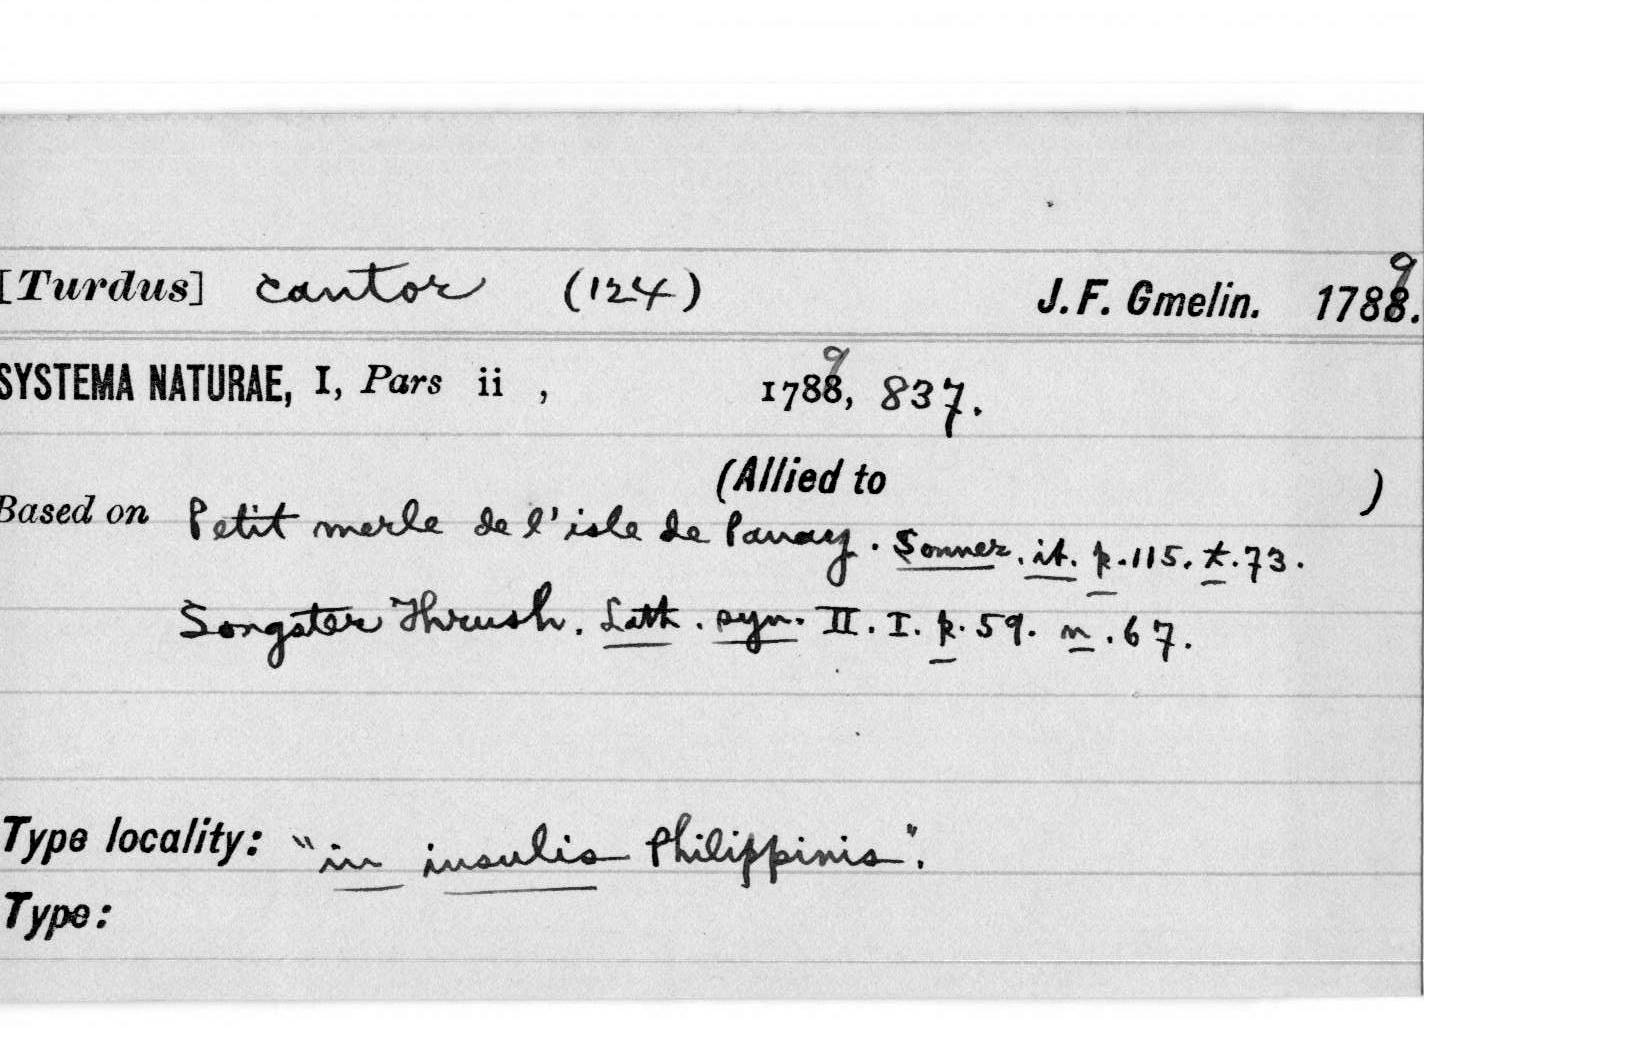 [Turdus] cantor (124) J. F. Gmelin. 1788. 9
SYSTEMA NATURAE, I, Pars ii , 1788, 9 837.
(Allied to )
Based on Petit merle de l'isle de Panay. Sonner. it. p. 115. t. 73.
Songster Thrush. Lath. syn. II. I. p. 59. n. 67.
Type locality: "in insulis Philippinis".
Type: